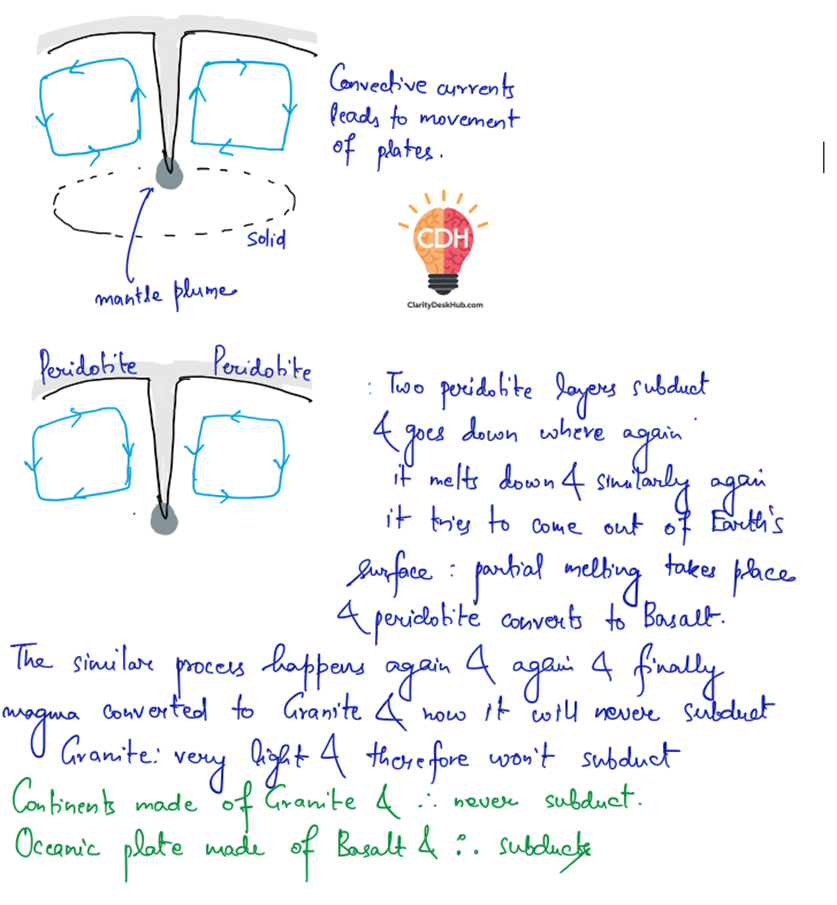 Convective currents
leads to movement
of plates.
solid
mantle plume
CDH
ClarityDeskHub.com
Peridotite Peridotite
: Two peridotite layers subduct
& goes down where again
it melts down & similarly again
it tries to come out of Earth's
surface : partial melting takes place
& peridotite converts to Basalt.
The similar process happens again & again & finally
magma converted to Granite & now it will never subduct
Granite: very light & therefore won't subduct
Continents made of Granite & ∴ never subduct.
Oceanic plate made of Basalt & ∴ subducts